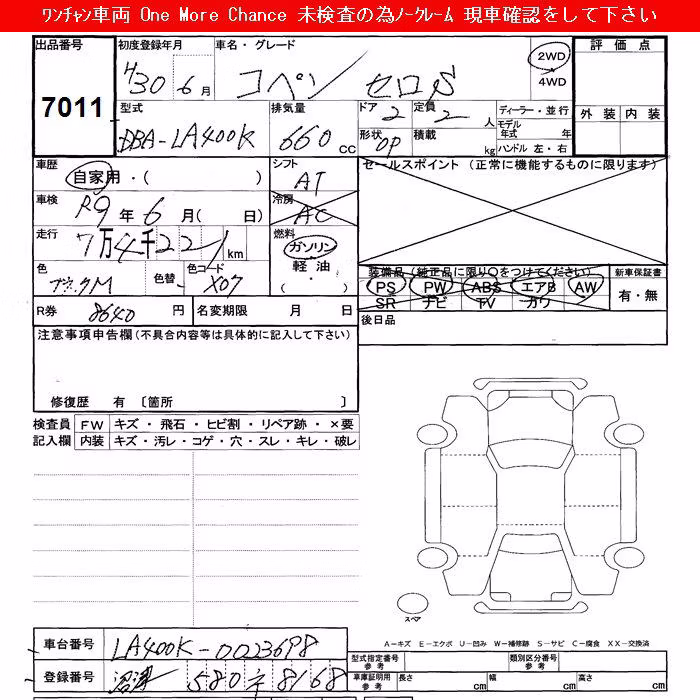 ﾜﾝﾁｬﾝ車両 One More Chance 未検査の為ﾉｰｸﾚｰﾑ 現車確認をして下さい
出品番号 初度登録年月 車名・グレード 評価点
7011 H30 6月 コペン セロS 2WD 4WD
型式 排気量 ドア 定員 ディーラー・並行 外装 内装
DBA-LA400K 660cc 2 2人 モデル年式 年
形状 OP 積載 kg ハンドル 左・右
車歴 シフト セールスポイント (正常に機能するものに限ります)
自家用・( ) AT
車検 冷房
R9年6月( 日) AC
走行 燃料
7万4千221km ガソリン
軽油
・( )
色 色替 色コード
X07
装備品 (純正品に限り○をつけてください) 新車保証書
PS PW ABS エアB AW 有・無
SR ナビ TV カワ
R券 8640円 名変期限 月 日 後日品
注意事項申告欄(不具合内容等は具体的に記入して下さい)
修復歴 有 〔箇所 〕
検査員 FW キズ・飛石・ヒビ割・リペア跡・×要
記入欄 内装 キズ・汚レ・コゲ・穴・スレ・キレ・破レ
スペア
A-キズ E-エクボ U-凹み W-補修跡 S-サビ C-腐食 XX-交換済
車台番号 LA400K-0023698
型式指定番号 参考 類別区分番号 参考
登録番号 沼津 580 ネ 8168
車庫証明用 参考 長さ cm 幅 cm 高さ cm